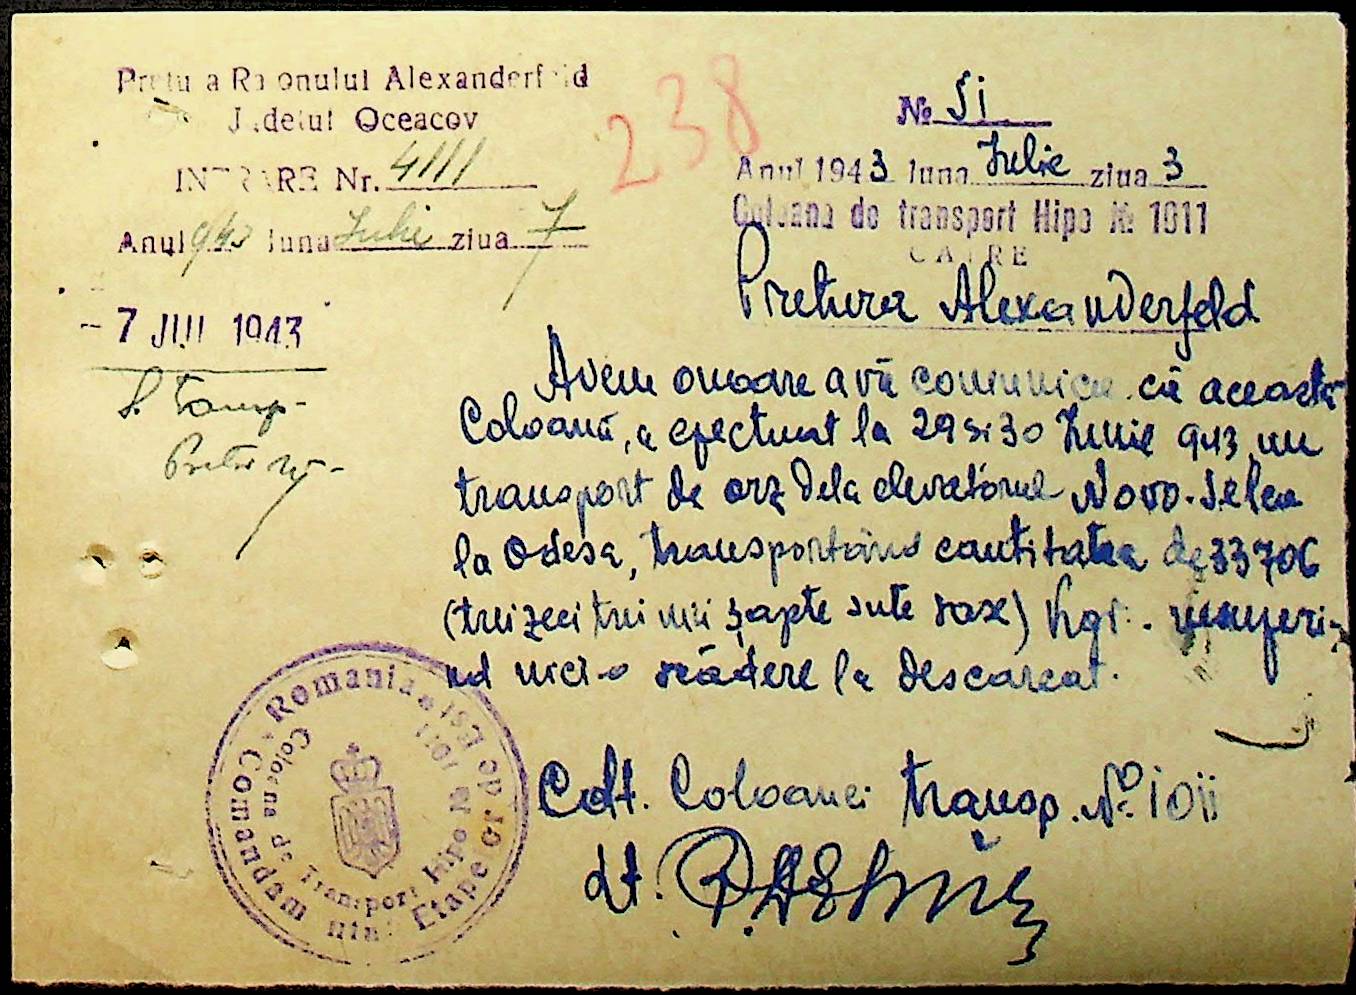 Pretura Raionului Alexanderfeld
Județul Oceacov
INTRARE Nr. 4111
Anul 943 luna Iulie ziua 7
238
№ 51
Anul 1943 luna Iulie ziua 3
Coloana de transport Hipo № 1011
CĂTRE
Pretura Alexanderfeld
- 7 JUL 1943
Avem onoare a vă comunica că această
Coloană, a efectuat la 29 si 30 Iunie 943 un
transport de orz dela elevatorul Novo-Selca
la Odesa, transportând cantitatea de 33706
(treizeci trei mii șapte sute șase) kgr. nesuferi-
nd nici-o scădere la descarcat.
Cdt. Coloanei transp. № 1011
România
Comandamentul Etape Gr. de Est
Coloana de Transport Hipo № 1011